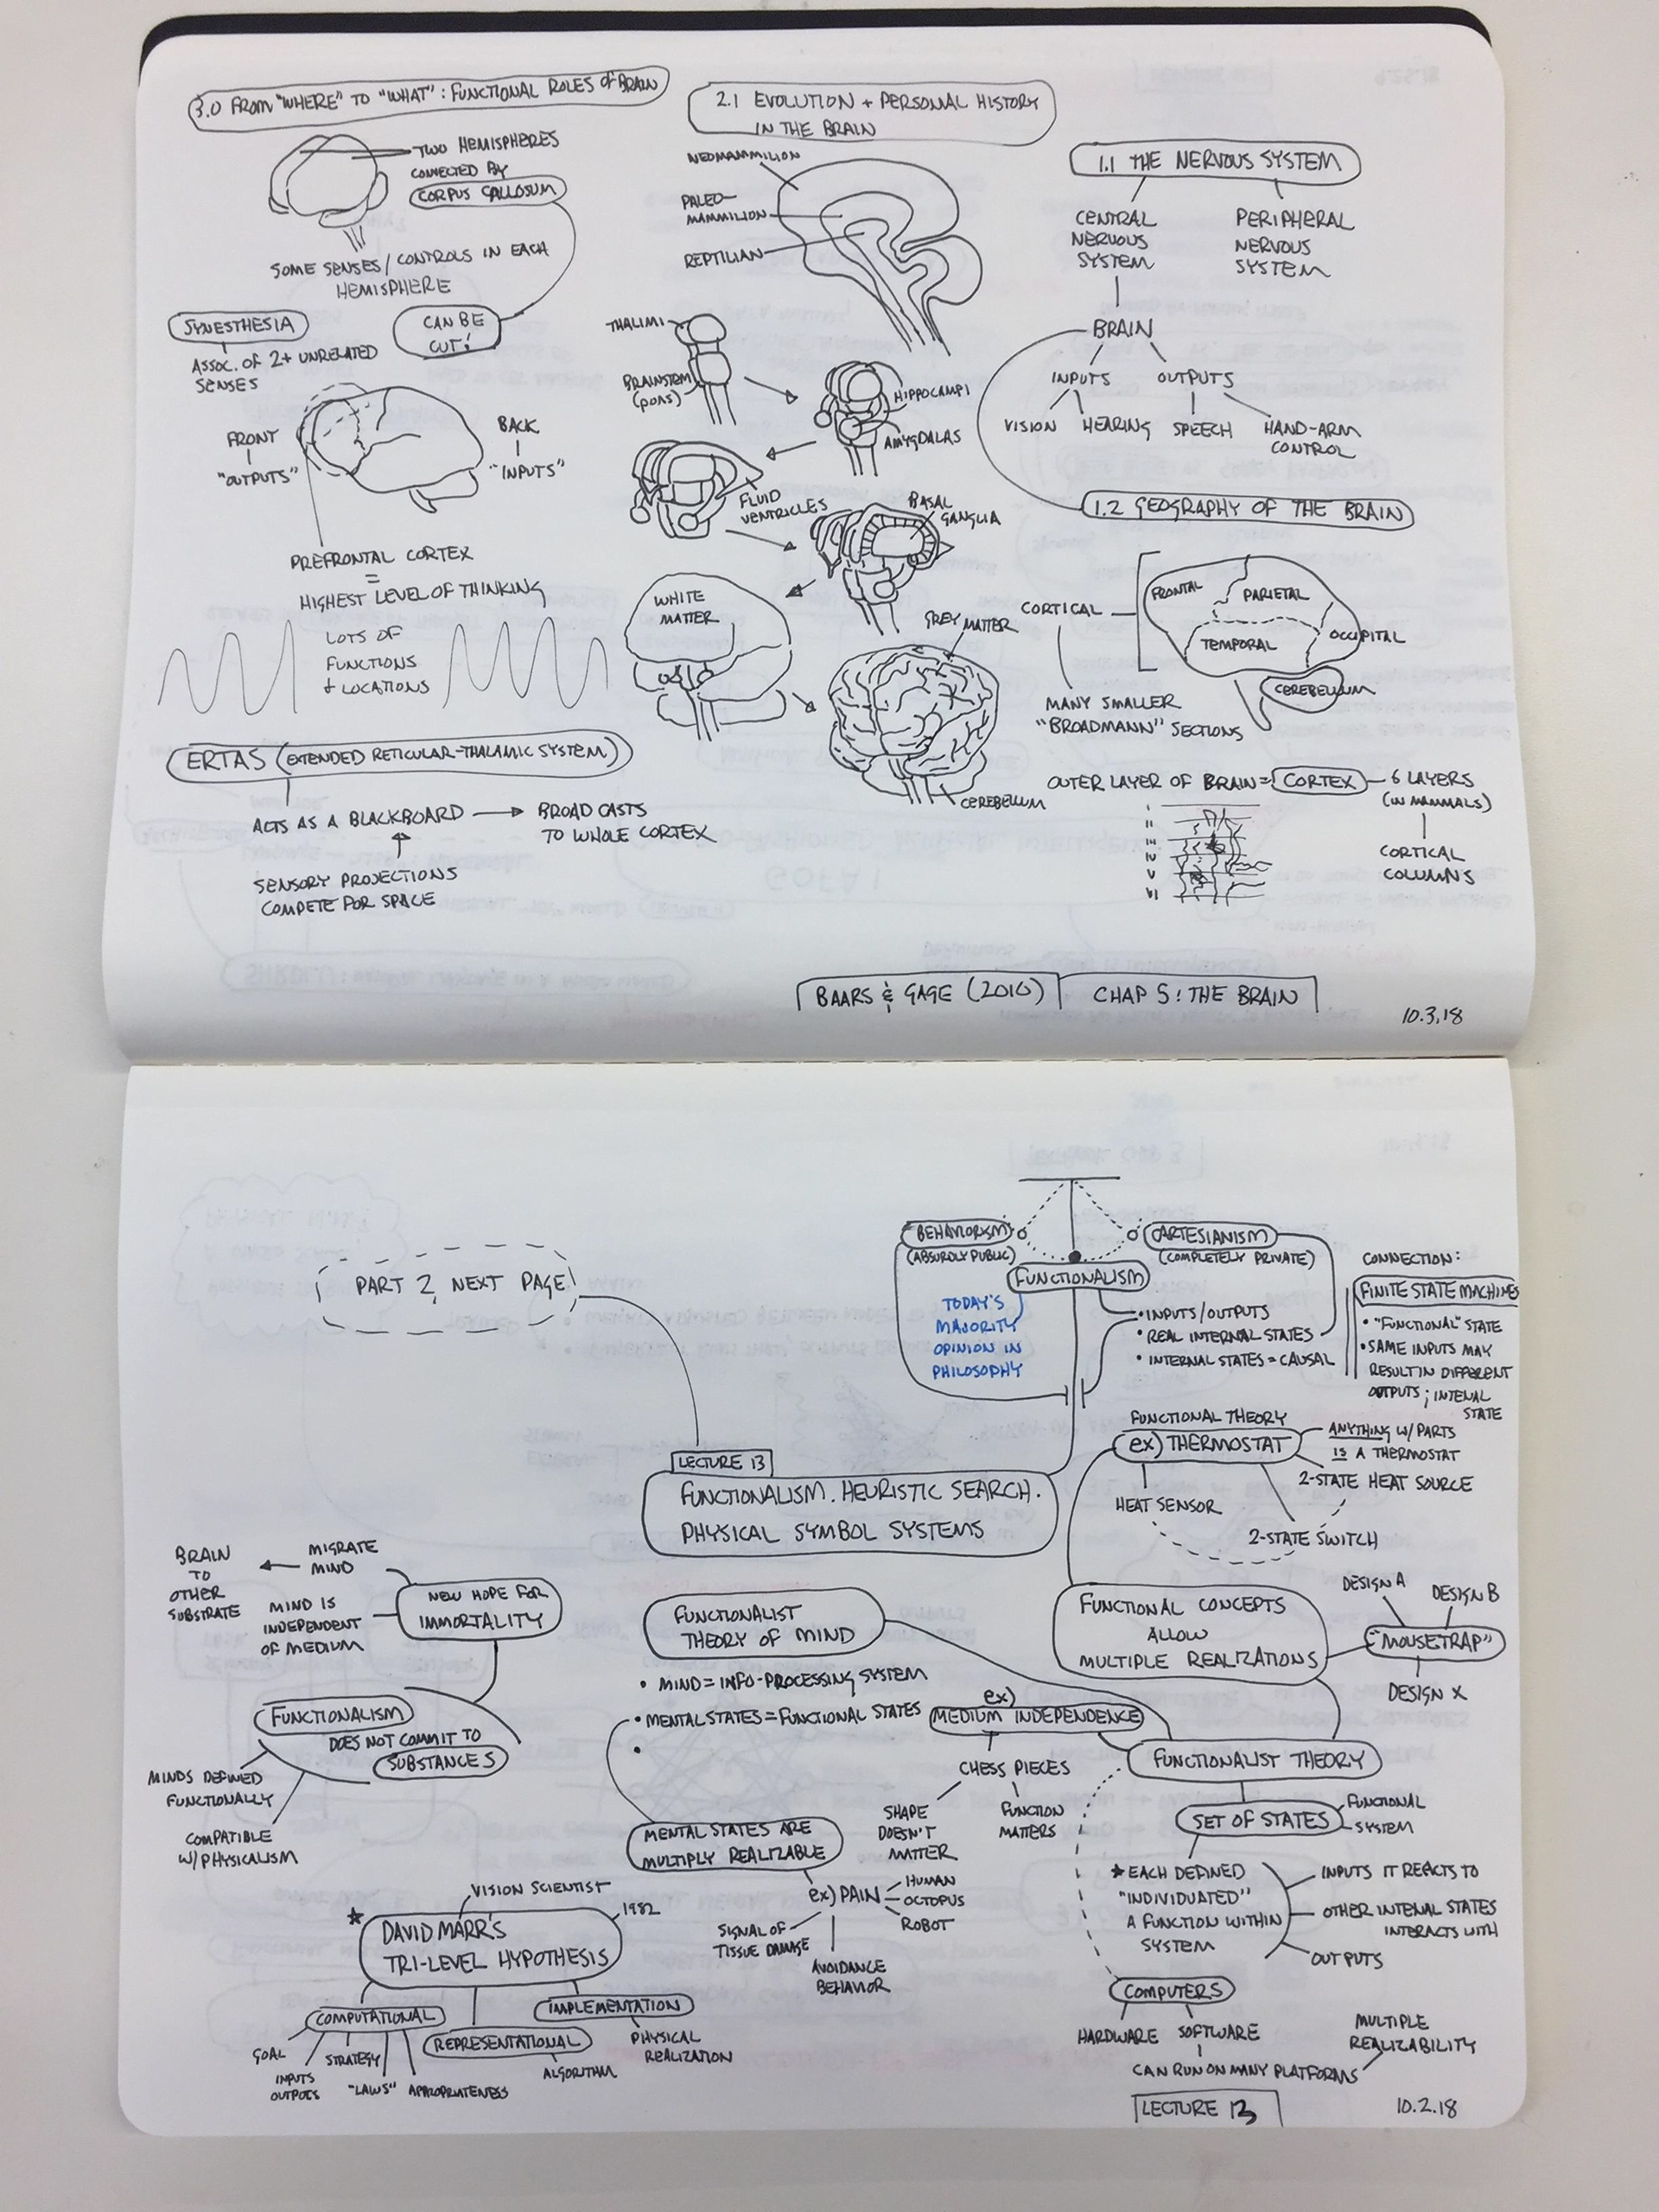 3.0 FROM "WHERE" TO "WHAT": FUNCTIONAL ROLES of BRAIN
TWO HEMISPHERES
CONNECTED BY
CORPUS CALLOSUM
SOME SENSES/CONTROLS IN EACH
HEMISPHERE
CAN BE
CUT!
SYNESTHESIA
ASSOC. OF 2+ UNRELATED
SENSES
FRONT
"OUTPUTS"
BACK
"INPUTS"
PREFRONTAL CORTEX
=
HIGHEST LEVEL OF THINKING
LOTS OF
FUNCTIONS
+ LOCATIONS
ERTAS (EXTENDED RETICULAR-THALAMIC SYSTEM)
ACTS AS A BLACKBOARD
BROAD CASTS
TO WHOLE CORTEX
SENSORY PROJECTIONS
COMPETE FOR SPACE
2.1 EVOLUTION + PERSONAL HISTORY
IN THE BRAIN
NEOMAMMILION
PALEO-
MAMMILION
REPTILIAN
THALIMI
BRAINSTEM
(PONS)
HIPPOCAMPI
AMYGDALAS
FLUID
VENTRICLES
BASAL
GANGLIA
WHITE
MATTER
GREY MATTER
CEREBELUM
1.1 THE NERVOUS SYSTEM
CENTRAL
NERVOUS
SYSTEM
PERIPHERAL
NERVOUS
SYSTEM
BRAIN
INPUTS
OUTPUTS
VISION
HEARING
SPEECH
HAND-ARM
CONTROL
1.2 GEOGRAPHY OF THE BRAIN
CORTICAL
FRONTAL
PARIETAL
TEMPORAL
OCCIPITAL
CEREBELLUM
MANY SMALLER
"BROADMANN" SECTIONS
OUTER LAYER OF BRAIN = CORTEX
6 LAYERS
(IN MAMMALS)
CORTICAL
COLUMNS
I
II
III
IV
V
VI
BAARS & GAGE (2010)
CHAP 5: THE BRAIN
10.3.18
PART 2, NEXT PAGE!
BEHAVIORISM
(ABSURDLY PUBLIC)
CARTESIANISM
(COMPLETELY PRIVATE)
FUNCTIONALISM
TODAY'S
MAJORITY
OPINION IN
PHILOSOPHY
• INPUTS/OUTPUTS
• REAL INTERNAL STATES
• INTERNAL STATES = CAUSAL
CONNECTION:
FINITE STATE MACHINES
• "FUNCTIONAL" STATE
• SAME INPUTS MAY
RESULT IN DIFFERENT
OUTPUTS; INTENAL
STATE
FUNCTIONAL THEORY
ex) THERMOSTAT
ANYTHING W/ PARTS
IS A THERMOSTAT
HEAT SENSOR
2-STATE HEAT SOURCE
2-STATE SWITCH
LECTURE 13
FUNCTIONALISM. HEURISTIC SEARCH.
PHYSICAL SYMBOL SYSTEMS
BRAIN
TO
OTHER
SUBSTRATE
MIGRATE
MIND
MIND IS
INDEPENDENT
OF MEDIUM
NEW HOPE FOR
IMMORTALITY
FUNCTIONALISM
DOES NOT COMMIT TO
SUBSTANCES
MINDS DEFINED
FUNCTIONALLY
COMPATIBLE
W/ PHYSICALISM
FUNCTIONALIST
THEORY OF MIND
• MIND = INFO-PROCESSING SYSTEM
• MENTAL STATES = FUNCTIONAL STATES
•
FUNCTIONAL CONCEPTS
ALLOW
MULTIPLE REALIZATIONS
DESIGN A
DESIGN B
"MOUSETRAP"
DESIGN X
ex)
MEDIUM INDEPENDENCE
CHESS PIECES
SHAPE
DOESN'T
MATTER
FUNCTION
MATTERS
FUNCTIONALIST THEORY
SET OF STATES
FUNCTIONAL
SYSTEM
★ EACH DEFINED
"INDIVIDUATED"
A FUNCTION WITHIN
SYSTEM
INPUTS IT REACTS TO
OTHER INTENAL STATES
INTERACTS WITH
OUTPUTS
MENTAL STATES ARE
MULTIPLY REALIZABLE
ex) PAIN
HUMAN
OCTOPUS
ROBOT
SIGNAL OF
TISSUE DAMAGE
AVOIDANCE
BEHAVIOR
VISION SCIENTIST
1982
★ DAVID MARR'S
TRI-LEVEL HYPOTHESIS
COMPUTATIONAL
GOAL
INPUTS
OUTPUTS
STRATEGY
"LAWS"
APPROPRIATENESS
REPRESENTATIONAL
ALGORITHM
IMPLEMENTATION
PHYSICAL
REALIZATION
COMPUTERS
HARDWARE
SOFTWARE
CAN RUN ON MANY PLATFORMS
MULTIPLE
REALIZABILITY
LECTURE 13
10.2.18